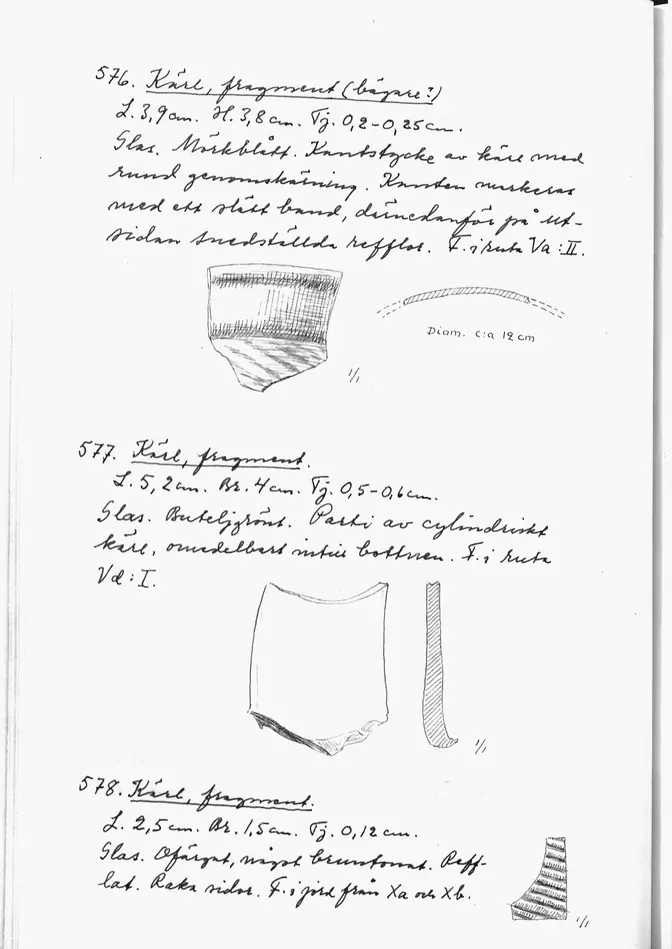 576. Kärl, fragment (bägare?)
L. 3,9 cm. H. 3,8 cm. Tj. 0,2-0,25 cm.
Glas. Mörkblått. Kantstycke av kärl med
rund genomskärning. Kanten markeras
med ett slätt band, därnedanför på ut-
sidan snedställda refflor. F. i ruta Va : II.
Diam. c:a 12 cm
1/1
577. Kärl, fragment.
L. 5,2 cm. Br. 4 cm. Tj. 0,5-0,6 cm.
Glas. Buteljgrönt. Parti av cylindriskt
kärl, omedelbart intill bottnen. F. i ruta
Vd : I.
1/1
578. Kärl, fragment.
L. 2,5 cm. Br. 1,5 cm. Tj. 0,12 cm.
Glas. Ofärgat, något bruntonat. Reff-
lat. Raka sidor. F. i jord från Xa och Xb.
1/1